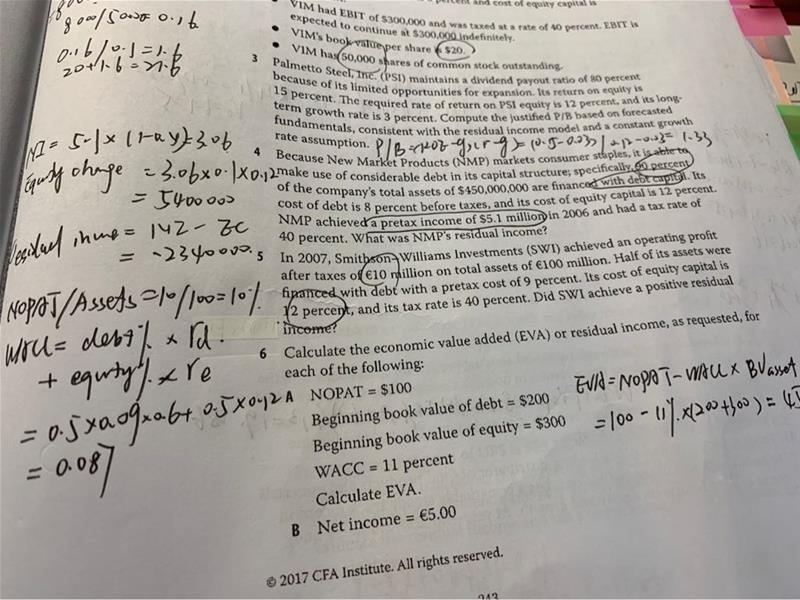 percent and cost of equity capital is
VIM had EBIT of $300,000 and was taxed at a rate of 40 percent. EBIT is
expected to continue at $300,000 indefinitely.
• VIM's book value per share is $20.
• VIM has 50,000 shares of common stock outstanding.
3 Palmetto Steel, Inc. (PSI) maintains a dividend payout ratio of 80 percent
because of its limited opportunities for expansion. Its return on equity is
15 percent. The required rate of return on PSI equity is 12 percent, and its long-
term growth rate is 3 percent. Compute the justified P/B based on forecasted
fundamentals, consistent with the residual income model and a constant growth
rate assumption.
4 Because New Market Products (NMP) markets consumer staples, it is able to
make use of considerable debt in its capital structure; specifically, 90 percent
of the company's total assets of $450,000,000 are financed with debt capital. Its
cost of debt is 8 percent before taxes, and its cost of equity capital is 12 percent.
NMP achieved a pretax income of $5.1 million in 2006 and had a tax rate of
40 percent. What was NMP's residual income?
5 In 2007, Smithson–Williams Investments (SWI) achieved an operating profit
after taxes of €10 million on total assets of €100 million. Half of its assets were
financed with debt with a pretax cost of 9 percent. Its cost of equity capital is
12 percent, and its tax rate is 40 percent. Did SWI achieve a positive residual
income?
6 Calculate the economic value added (EVA) or residual income, as requested, for
each of the following:
A NOPAT = $100
Beginning book value of debt = $200
Beginning book value of equity = $300
WACC = 11 percent
Calculate EVA.
B Net income = €5.00
© 2017 CFA Institute. All rights reserved.
243
0.16/0.1=1.6
20+1.6=21.6
NI = 5.1 x (1-0.4)=3.06
Equity change = 3.06 x 0.1 x 0.12
= 5400000
Residual income =
= -2340000.
NOPAT/Assets = 10/100=10%
WACC = debt% x rd
+ equity% x re
= 0.5 x 0.09 x 0.6 + 0.5 x 0.12
= 0.087
EVA = NOPAT - WACC x BVasset
= 100 - 11% x (200+300) = 45